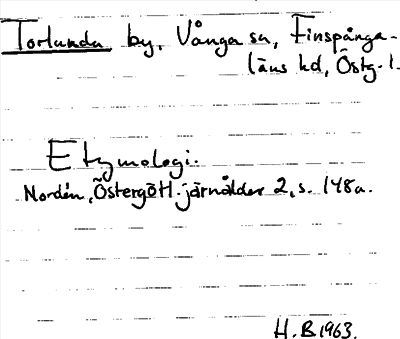 Torlunda by, Vånga sn, Finspånga-
läns hd, Östg. l.
Etymologi.
Nordén, Östergötl. järnålder 2, s. 148a.
H.B. 1963.